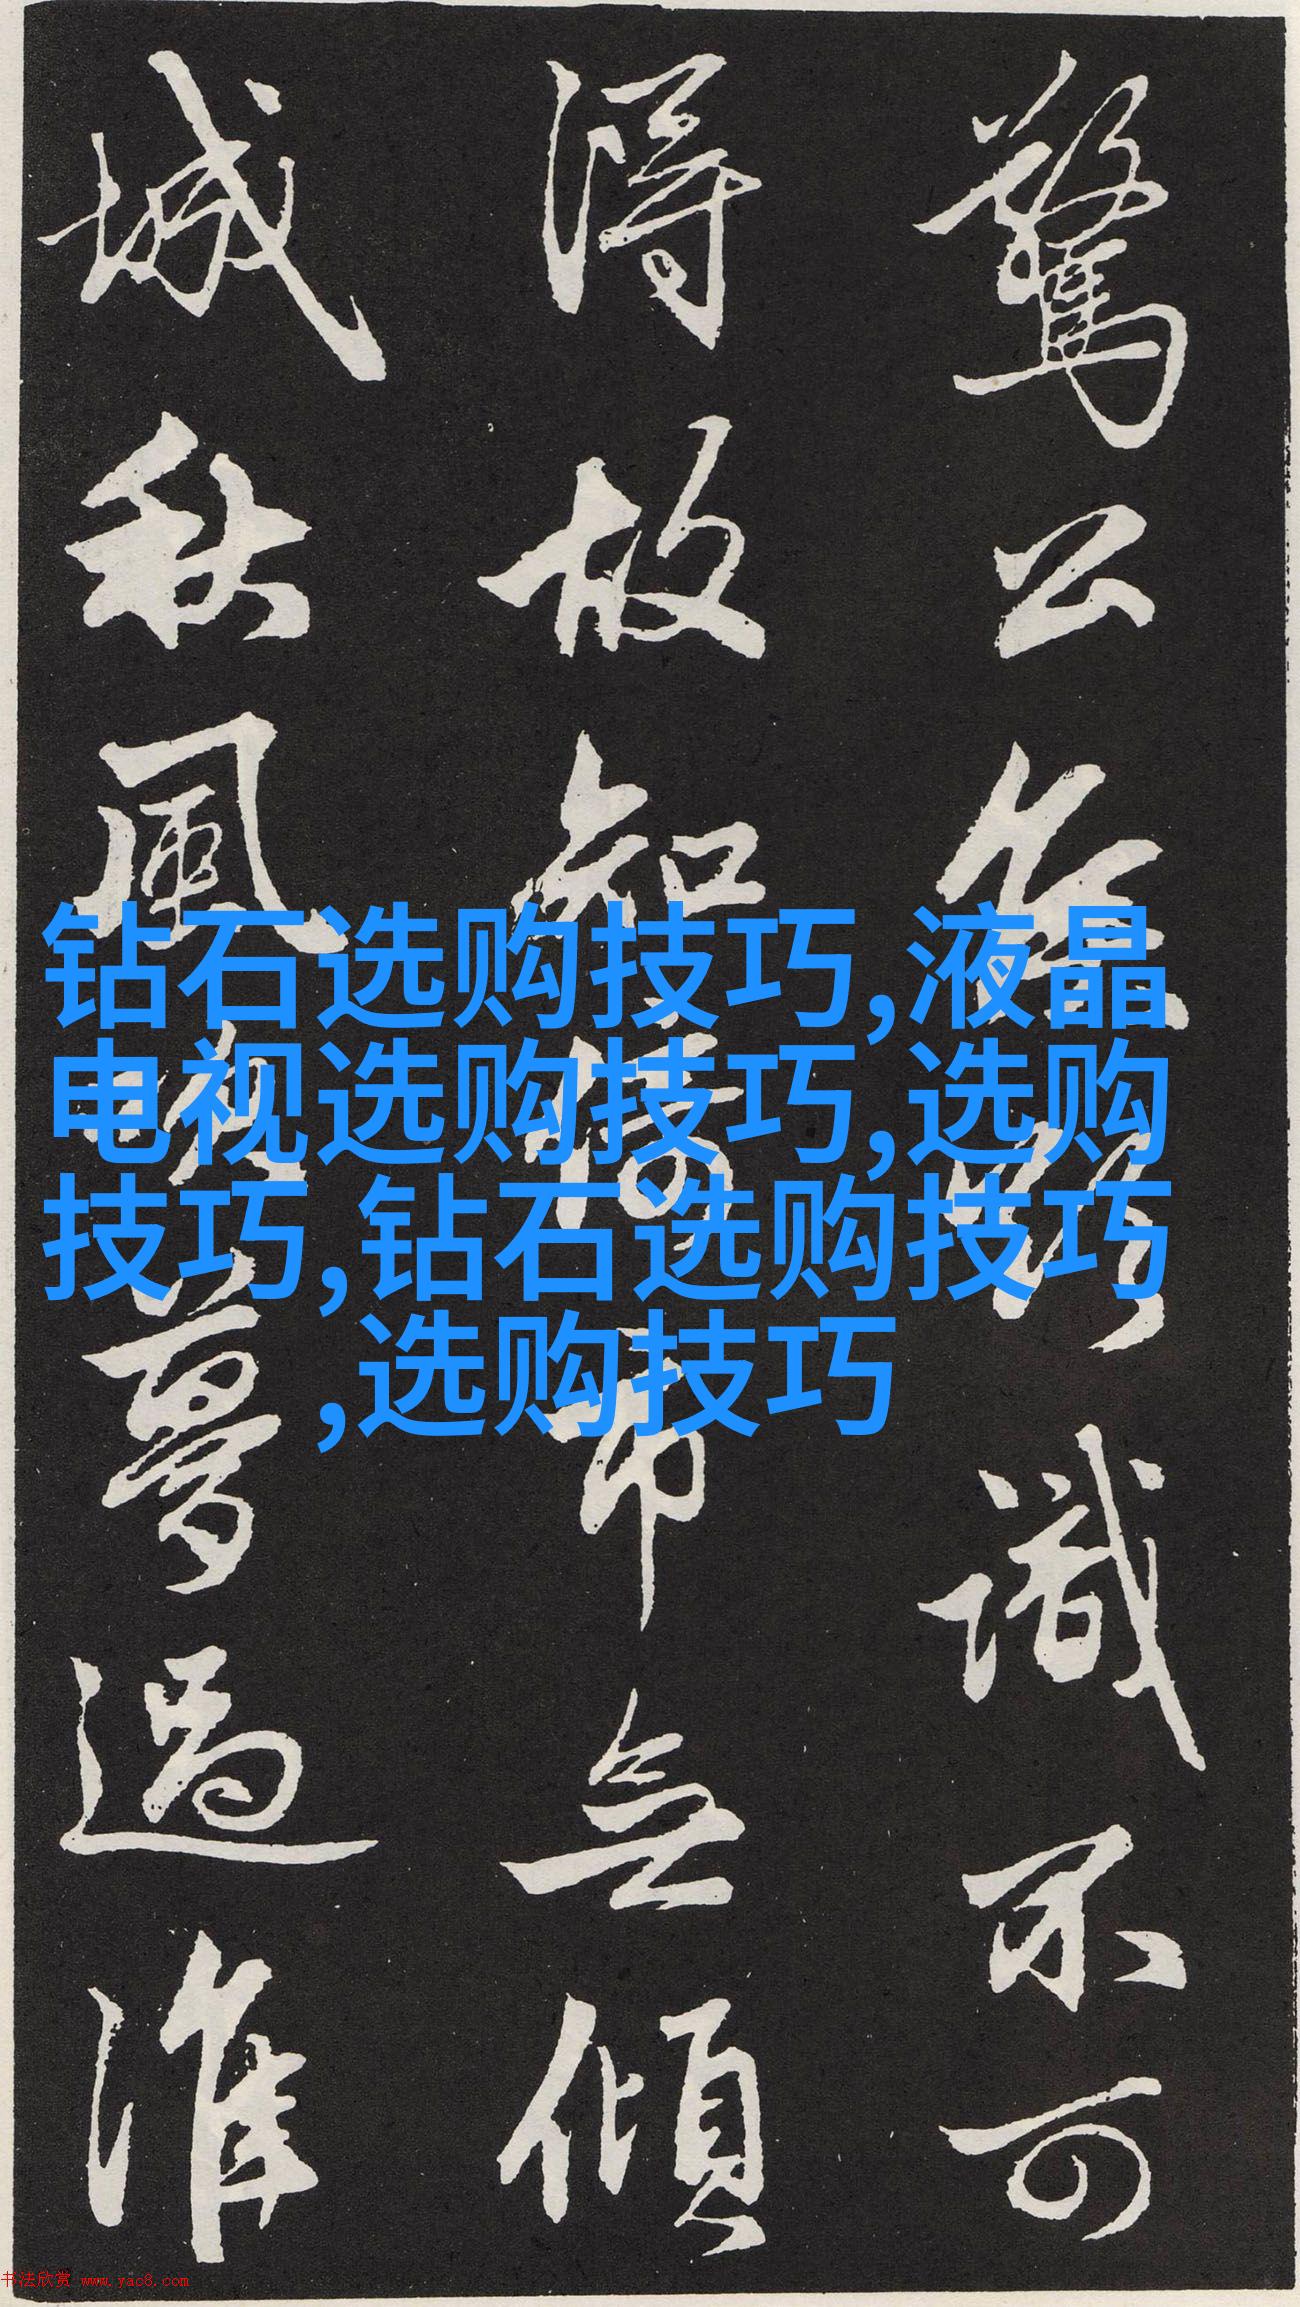 驚公識不可
得故知無傾
城秋風夢過淮
钻石选购技巧,液晶
电视选购技巧,选购
技巧,钻石选购技巧
,选购技巧
书法欣赏 www.yac8.com